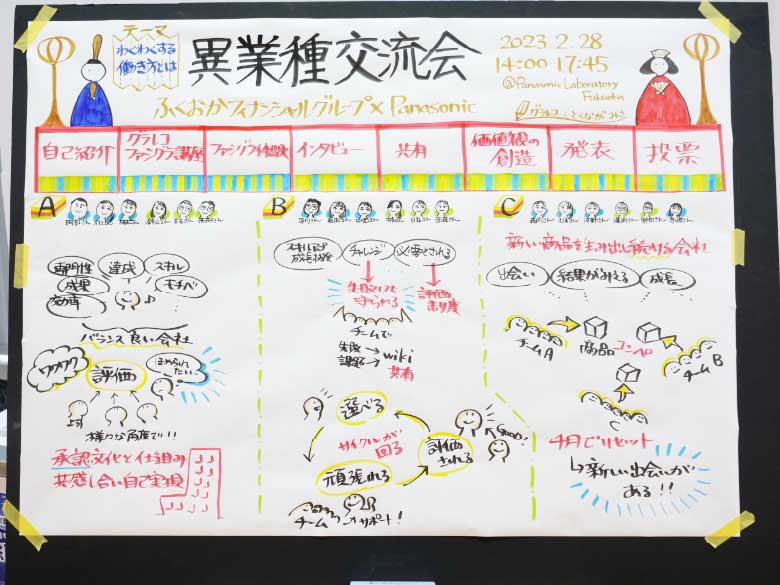 テーマ
わくわくする
働き方とは
異業種交流会
2023 2.28
14:00-17:45
@Panasonic Laboratory
Fukuoka
ふくおかフィナンシャルグループ×Panasonic
グラレコ
自己紹介
グラレコ
ファシグラ講座
ファシグラ体験
インタビュー
共有
価値観の
創造
発表
投票
A
専門性
達成
スキル
成果
モチベ
効率
バランス良い会社
ワクワク
評価
上司
様々な角度で!!
承認文化と仕組み
共感し合い自己実現
B
チャレンジ
必要とされる
失敗しても
守られる
評価
制度
チームで
失敗
課題
wiki
共有
選べる
サイクルが
回る
頑張れる
評価
される
Good!
チーム
サポート!
C
新しい商品を生み出し続ける会社
出会い
結果がみえる
成長
チームA
商品
コンペ
チームB
C
4月でリセット
↳新しい出会いが
ある!!